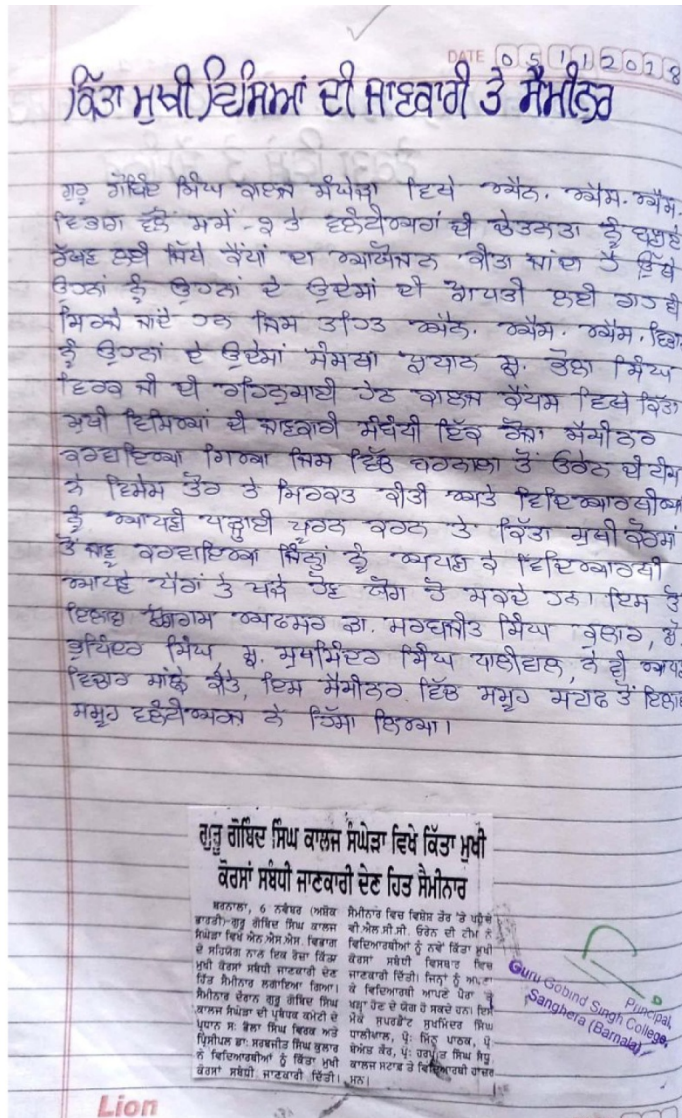 DATE 05112018
ਕਿੱਤਾ ਮੁਖੀ ਵਿਸ਼ਿਆਂ ਦੀ ਜਾਣਕਾਰੀ ਤੇ ਸੈਮੀਨਾਰ
ਗੁਰੂ ਗੋਬਿੰਦ ਸਿੰਘ ਕਾਲਜ ਸੰਘੇੜਾ ਵਿਖੇ ਐਨ. ਐਸ. ਐਸ.
ਵਿਭਾਗ ਵੱਲੋਂ ਸਮੇਂ-੨ ਤੇ ਵਲੰਟੀਅਰਾਂ ਦੀ ਚੇਤਨਤਾ ਨੂੰ ਬਣਾਏ
ਰੱਖਣ ਲਈ ਜਿੱਥੇ ਕੈਂਪਾਂ ਦਾ ਆਯੋਜਨ ਕੀਤਾ ਜਾਂਦਾ ਹੈ ਉੱਥੇ
ਉਹਨਾਂ ਨੂੰ ਉਹਨਾਂ ਦੇ ਉਦੇਸ਼ਾਂ ਦੀ ਪ੍ਰਾਪਤੀ ਲਈ
ਜਾਂਦੇ ਹਨ ਜਿਸ ਤਹਿਤ ਐਨ. ਐਸ. ਐਸ. ਵਿਭਾਗ
ਨੂੰ ਉਹਨਾਂ ਦੇ ਉਦੇਸ਼ਾਂ ਸੰਸਥਾ ਪ੍ਰਧਾਨ ਸ੍ਰ. ਭੋਲਾ ਸਿੰਘ
ਵਿਰਕ ਜੀ ਦੀ ਰਹਿਨੁਮਾਈ ਹੇਠ ਕਾਲਜ ਕੈਂਪਸ ਵਿਖੇ ਕਿੱਤਾ
ਮੁਖੀ ਵਿਸ਼ਿਆਂ ਦੀ ਜਾਣਕਾਰੀ ਸੰਬੰਧੀ ਇੱਕ ਰੋਜ਼ਾ ਸੈਮੀਨਾਰ
ਕਰਵਾਇਆ ਗਿਆ ਜਿਸ ਵਿੱਚ ਬਰਨਾਲਾ ਤੋਂ ਓਰੇਨ ਦੀ ਟੀਮ
ਨੇ ਵਿਸ਼ੇਸ਼ ਤੌਰ ਤੇ ਸ਼ਿਰਕਤ ਕੀਤੀ ਅਤੇ ਵਿਦਿਆਰਥੀਆਂ
ਨੂੰ ਆਪਣੀ ਪੜ੍ਹਾਈ ਪੂਰਨ ਕਰਨ ਤੇ ਕਿੱਤਾ ਮੁਖੀ ਕੋਰਸਾਂ
ਤੋਂ ਜਾਣੂ ਕਰਵਾਇਆ ਜਿੰਨ੍ਹਾਂ ਨੂੰ ਅਪਣਾ ਕੇ ਵਿਦਿਆਰਥੀ
ਆਪਣੇ ਪੈਰਾਂ ਤੇ ਖੜੇ ਹੋਣ ਯੋਗ ਹੋ ਸਕਦੇ ਹਨ। ਇਸ ਤੋਂ
ਇਲਾਵਾ ਪ੍ਰੋਗਰਾਮ ਅਫਸਰ ਡਾ. ਸਰਬਜੀਤ ਸਿੰਘ ਕੁਲਾਰ, ਪ੍ਰੋ.
ਭੁਪਿੰਦਰ ਸਿੰਘ, ਸ੍ਰ. ਸੁਖਮਿੰਦਰ ਸਿੰਘ ਧਾਲੀਵਾਲ, ਨੇ ਵੀ ਆਪਣੇ
ਵਿਚਾਰ ਸਾਂਝੇ ਕੀਤੇ, ਇਸ ਸੈਮੀਨਾਰ ਵਿੱਚ ਸਮੂਹ ਸਟਾਫ ਤੋਂ ਇਲਾਵਾ
ਸਮੂਹ ਵਲੰਟੀਅਰਜ਼ ਨੇ ਹਿੱਸਾ ਲਿਆ।
ਗੁਰੂ ਗੋਬਿੰਦ ਸਿੰਘ ਕਾਲਜ ਸੰਘੇੜਾ ਵਿਖੇ ਕਿੱਤਾ ਮੁਖੀ
ਕੋਰਸਾਂ ਸਬੰਧੀ ਜਾਣਕਾਰੀ ਦੇਣ ਹਿਤ ਸੈਮੀਨਾਰ
ਬਰਨਾਲਾ, 6 ਨਵੰਬਰ (ਅਸ਼ੋਕ
ਭਾਰਤੀ)-ਗੁਰੂ ਗੋਬਿੰਦ ਸਿੰਘ ਕਾਲਜ
ਸੰਘੇੜਾ ਵਿਖੇ ਐਨ.ਐਸ.ਐਸ. ਵਿਭਾਗ
ਦੇ ਸਹਿਯੋਗ ਨਾਲ ਇਕ ਰੋਜ਼ਾ ਕਿੱਤਾ
ਮੁਖੀ ਕੋਰਸਾਂ ਸਬੰਧੀ ਜਾਣਕਾਰੀ ਦੇਣ
ਹਿੱਤ ਸੈਮੀਨਾਰ ਲਗਾਇਆ ਗਿਆ।
ਸੈਮੀਨਾਰ ਦੌਰਾਨ ਗੁਰੂ ਗੋਬਿੰਦ ਸਿੰਘ
ਕਾਲਜ ਸੰਘੇੜਾ ਦੀ ਪ੍ਰਬੰਧਕ ਕਮੇਟੀ ਦੇ
ਪ੍ਰਧਾਨ ਸ: ਭੋਲਾ ਸਿੰਘ ਵਿਰਕ ਅਤੇ
ਪ੍ਰਿੰਸੀਪਲ ਡਾ: ਸਰਬਜੀਤ ਸਿੰਘ ਕੁਲਾਰ
ਨੇ ਵਿਦਿਆਰਥੀਆਂ ਨੂੰ ਕਿੱਤਾ ਮੁਖੀ
ਕੋਰਸਾਂ ਸਬੰਧੀ ਜਾਣਕਾਰੀ ਦਿੱਤੀ।
ਸੈਮੀਨਾਰ ਵਿਚ ਵਿਸ਼ੇਸ਼ ਤੌਰ 'ਤੇ ਪਹੁੰਚੇ
ਵੀ.ਐਲ.ਸੀ.ਸੀ. ਓਰੇਨ ਦੀ ਟੀਮ ਨੇ
ਵਿਦਿਆਰਥੀਆਂ ਨੂੰ ਨਵੇਂ ਕਿੱਤਾ ਮੁਖੀ
ਕੋਰਸਾਂ ਸਬੰਧੀ ਵਿਸਥਾਰ ਵਿਚ
ਜਾਣਕਾਰੀ ਦਿੱਤੀ। ਜਿਨ੍ਹਾਂ ਨੂੰ ਅਪਣਾ
ਕੇ ਵਿਦਿਆਰਥੀ ਆਪਣੇ ਪੈਰਾਂ 'ਤੇ
ਖੜ੍ਹਾ ਹੋਣ ਦੇ ਯੋਗ ਹੋ ਸਕਦੇ ਹਨ। ਇਸ
ਮੌਕੇ ਸੁਪਰਡੈਂਟ ਸੁਖਮਿੰਦਰ ਸਿੰਘ
ਧਾਲੀਵਾਲ, ਪ੍ਰੋ: ਮਿੰਨੂ ਪਾਠਕ, ਪ੍ਰੋ:
ਬੇਅੰਤ ਕੌਰ, ਪ੍ਰੋ: ਹਰਪ੍ਰੀਤ ਸਿੰਘ ਸਿੱਧੂ,
ਕਾਲਜ ਸਟਾਫ ਤੇ ਵਿਦਿਆਰਥੀ ਹਾਜ਼ਰ
ਸਨ।
Principal,
Guru Gobind Singh College,
Sanghera (Barnala)
Lion